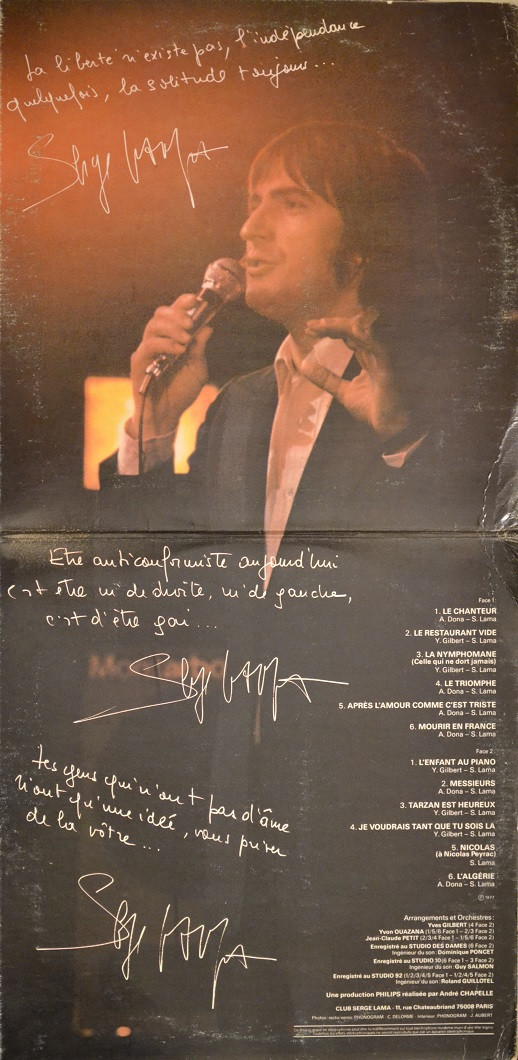 La liberté n'existe pas, l'indépendance
quelquefois, la solitude toujours...
Serge LAMA
Etre anticonformiste aujourd'hui
c'est être ni de droite, ni de gauche,
c'est d'être gai...
Serge LAMA
Les gens qui n'ont pas d'âme
n'ont qu'une idée, vous priver
de la vôtre...
Serge LAMA
Face 1:
1. LE CHANTEUR
A. Dona – S. Lama
2. LE RESTAURANT VIDE
Y. Gilbert – S. Lama
3. LA NYMPHOMANE
(Celle qui ne dort jamais)
Y. Gilbert – S. Lama
4. LE TRIOMPHE
A. Dona – S. Lama
5. APRÈS L'AMOUR COMME C'EST TRISTE
A. Dona – S. Lama
6. MOURIR EN FRANCE
A. Dona – S. Lama
Face 2:
1. L'ENFANT AU PIANO
Y. Gilbert – S. Lama
2. MESSIEURS
A. Dona – S. Lama
3. TARZAN EST HEUREUX
Y. Gilbert – S. Lama
4. JE VOUDRAIS TANT QUE TU SOIS LA
Y. Gilbert – S. Lama
5. NICOLAS
(à Nicolas Peyrac)
S. Lama
6. L'ALGÉRIE
A. Dona – S. Lama
Ⓟ 1977
Arrangements et Orchestres:
Yves GILBERT (4 Face 2)
Yvon OUAZANA (1/5/6 Face 1 – 2/3 Face 2)
Jean-Claude PETIT (2/3/4 Face 1 – 1/5/6 Face 2)
Enregistré au STUDIO DES DAMES (6 Face 2)
Ingénieur du son: Dominique PONCET
Enregistré au STUDIO 10 (6 Face 1 – 3 Face 2)
Ingénieur du son: Guy SALMON
Enregistré au STUDIO 92 (1/2/3/4/5 Face 1 – 1/2/4/5 Face 2)
Ingénieur du son: Roland GUILLOTEL
Une production PHILIPS réalisée par André CHAPELLE
CLUB SERGE LAMA · 11, rue Chateaubriand 75008 PARIS
Photos: recto verso PHONOGRAM · C. DELORME · Intérieur PHONOGRAM · J. AUBERT